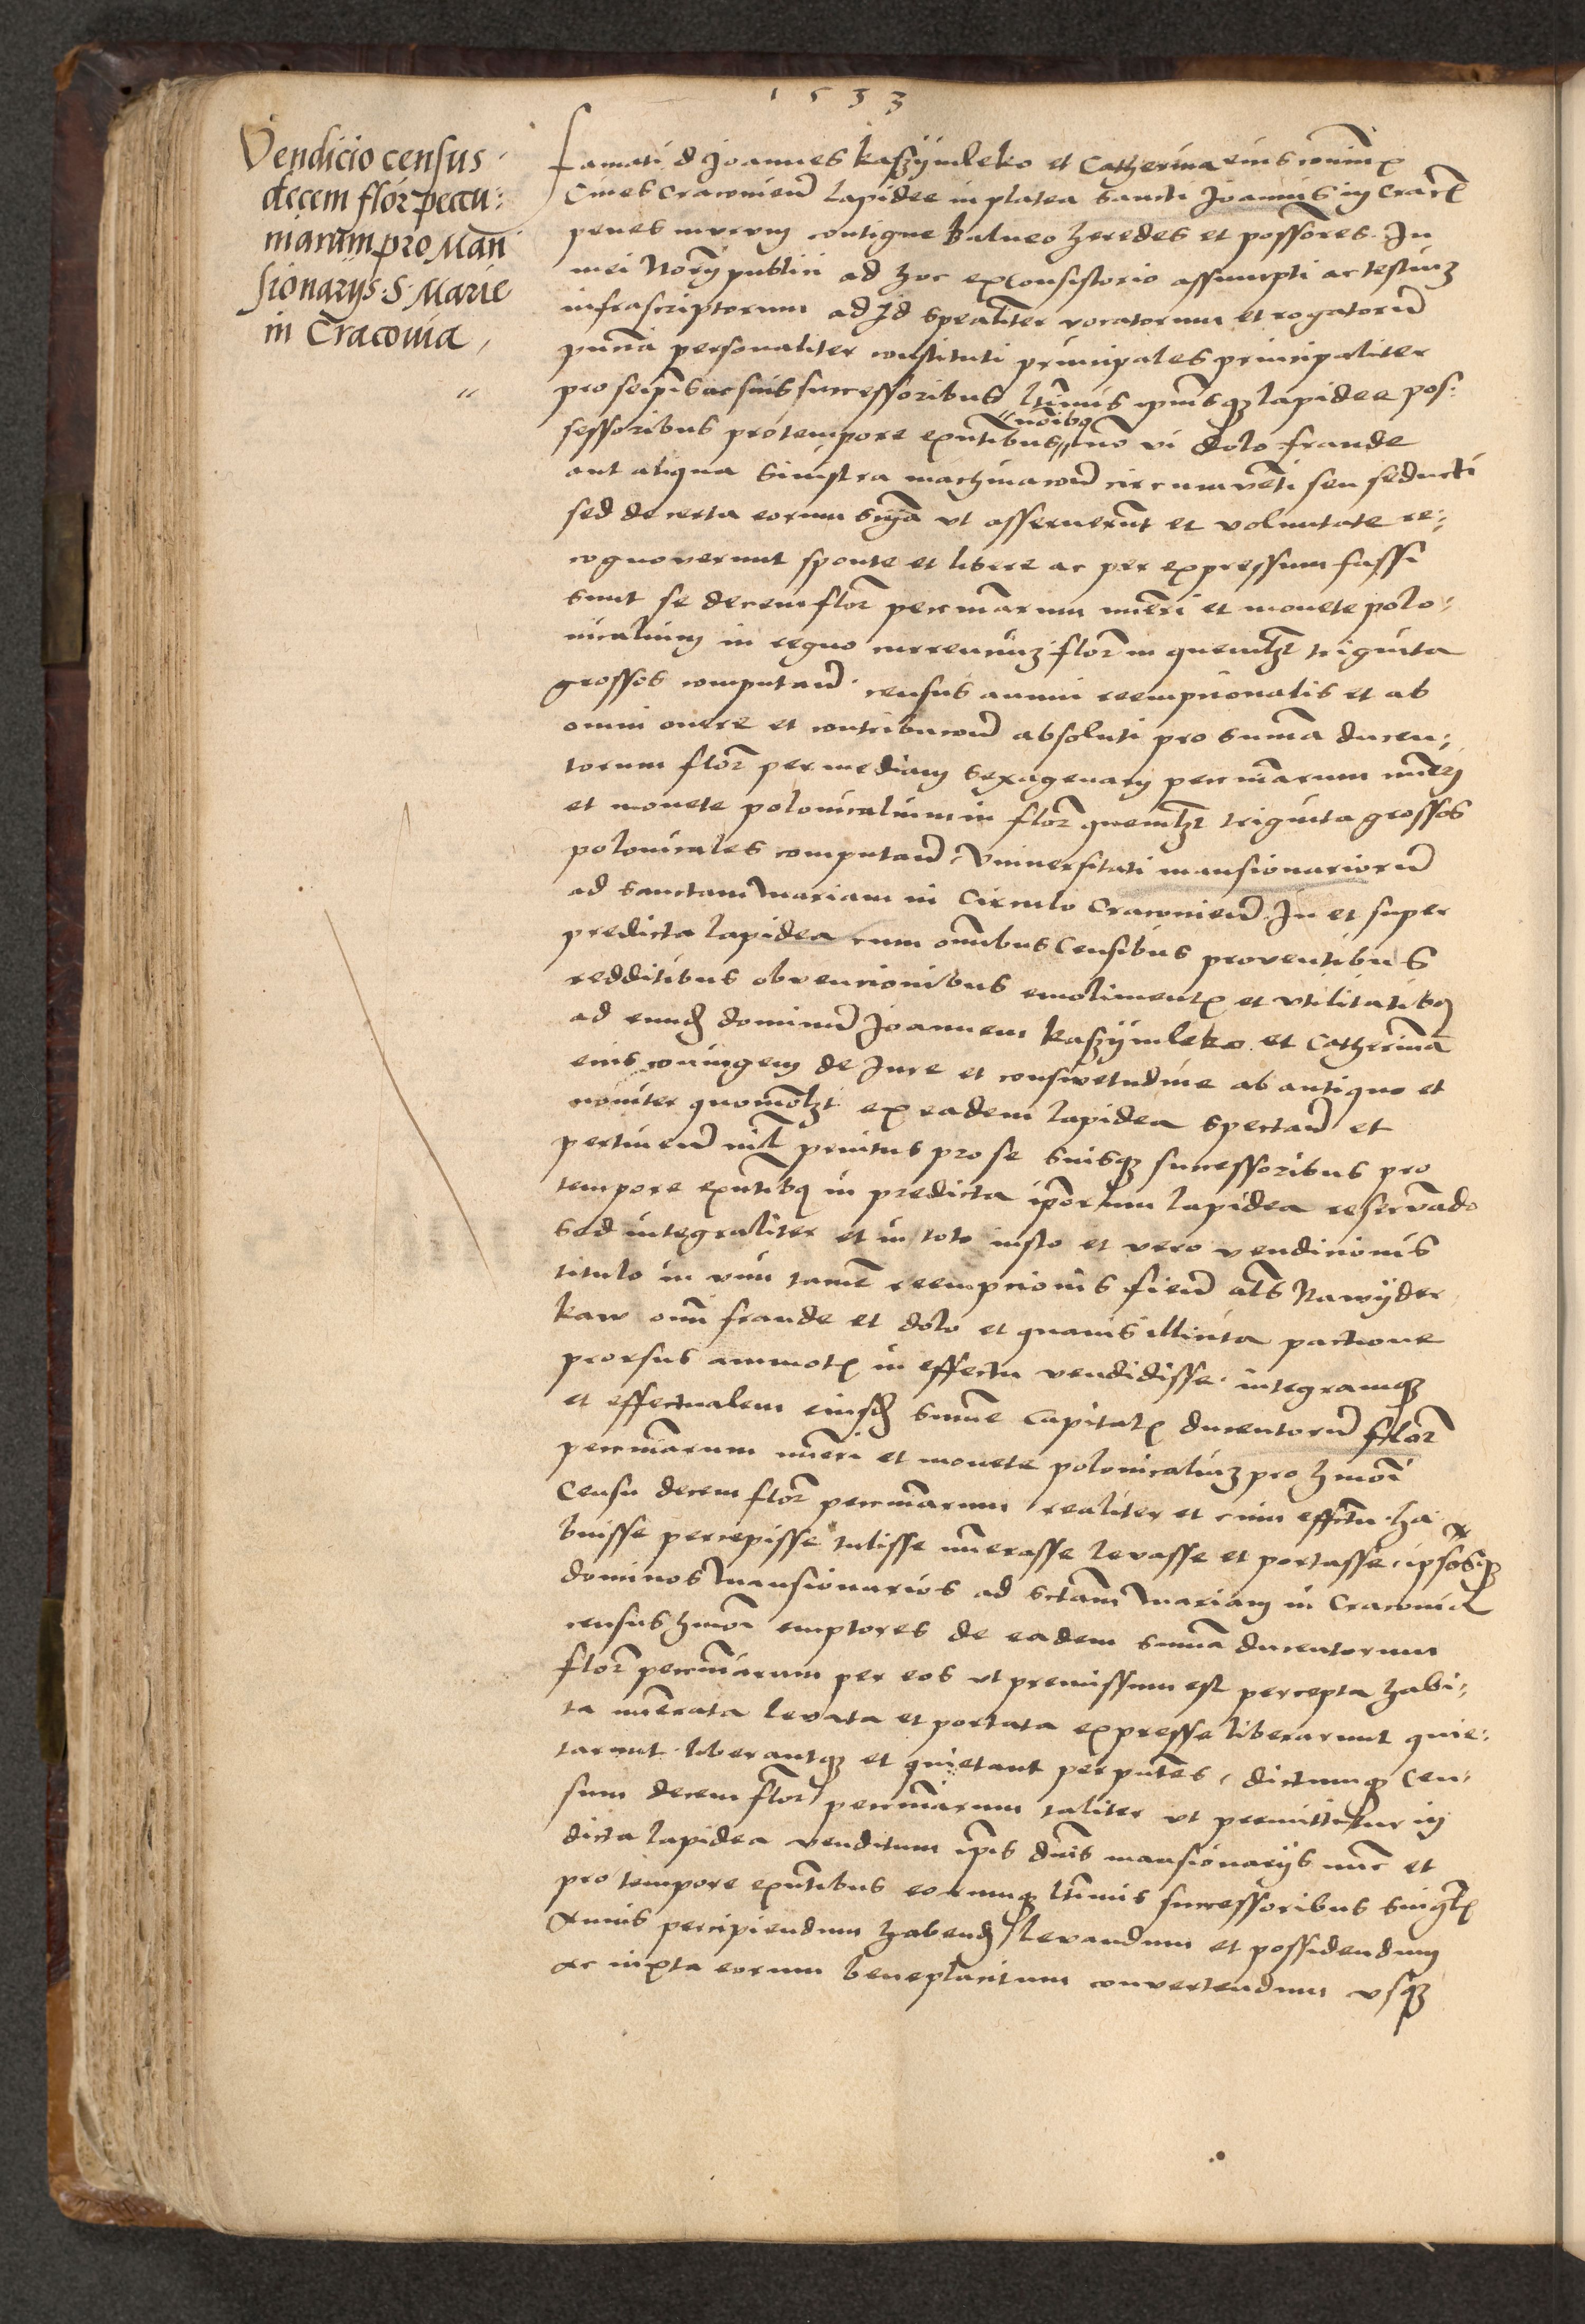 1533
Vendicio census
decem flor pecu:
niarum pro Man
sionarijs S. Marie
in Cracovia
famati d Joannes kaszijmleko et Catherina eius coniunx
Cives Cracovien lapidee in platea sancti Joannis in Crac
penes murum contigue Balneo heredes et possores. In
mei Norij publici ad hoc ex Consistorio assumpti ac testium
infrascriptorum ad Id spealiter vocatorum et rogatorum
pntia personaliter constituti principales principaliter
pro seipsis ac suis successoribus ltimis ipiusqz lapidee pos:
sessoribus pro tempore exntibus no vi dolo fraude
aut aliqua sinistra machinacoe circumventi seu seducti
sed de certa eorum scia ut asseruerunt et voluntate re:
cognoverunt sponte et libere ac per expressum fassi
sunt se decem flor pecuniarum nueri et monete polo:
nicalium in regno currencium flor in quemlzt triginta
grossos computan. census annui reempcionalis et ab
omni onere et contribucoe absoluti pro suma ducen:
torum flor per mediam sexagenam pecuniarum nueri
et monete polonicalium in flor quemlzt triginta grossos
polonicales computan. Universitati mansionariorum
ad sanctam Mariam in Circulo Cracovien. In et super
predicta lapidea cum omibus Censibus proventibus
redditibus obvencionibus emoliment et utilitatibus
ad eund dominum Joannem kaszijmleko et Catherinam
eius coniugem de Jure et consuetudine ab antiquo et
noviter quomolzt ex eadem lapidea spectan et
pertinen nil penitus pro se suisqz successoribus pro
tempore exntibus in predicta iporum lapidea reservado
sed integraliter et in toto iusto et vero vendicionis
titulo in vim tame reempcionis fien als Nawijder
kaw omi fraude et dolo et quavis illicita pactione
prorsus ammot in effectu vendidisse. integramqz
et effectualem eiusd summe Capital ducentorum flor
pecuniarum nueri et monete polonicalium pro hmoi
Censu decem flor pecuniarum realiter et cum effectu ha
buisse percepisse tulisse nuerasse levasse et portasse, ipsosqz
dominos Mansionarios ad sctam Mariam in Cracovia
census hmoi emptores de eadem suma ducentorum
flor pecuniarum per eos ut premissum est percepta habi:
ta nuerata levata et portata expresse liberarunt quie:
tarunt liberantqz et quietant per pntes, dictumqz Cen:
sum decem flor pecuniarum taliter ut premittitur in
dicta lapidea venditum ipis dnis mansionarijs nuc et
pro tempore exntibus eorumqz ltimis successoribus singlis
Annis percipiendum habend levandum et possidendum
Ac iuxta eorum beneplacitum convertendum usqz